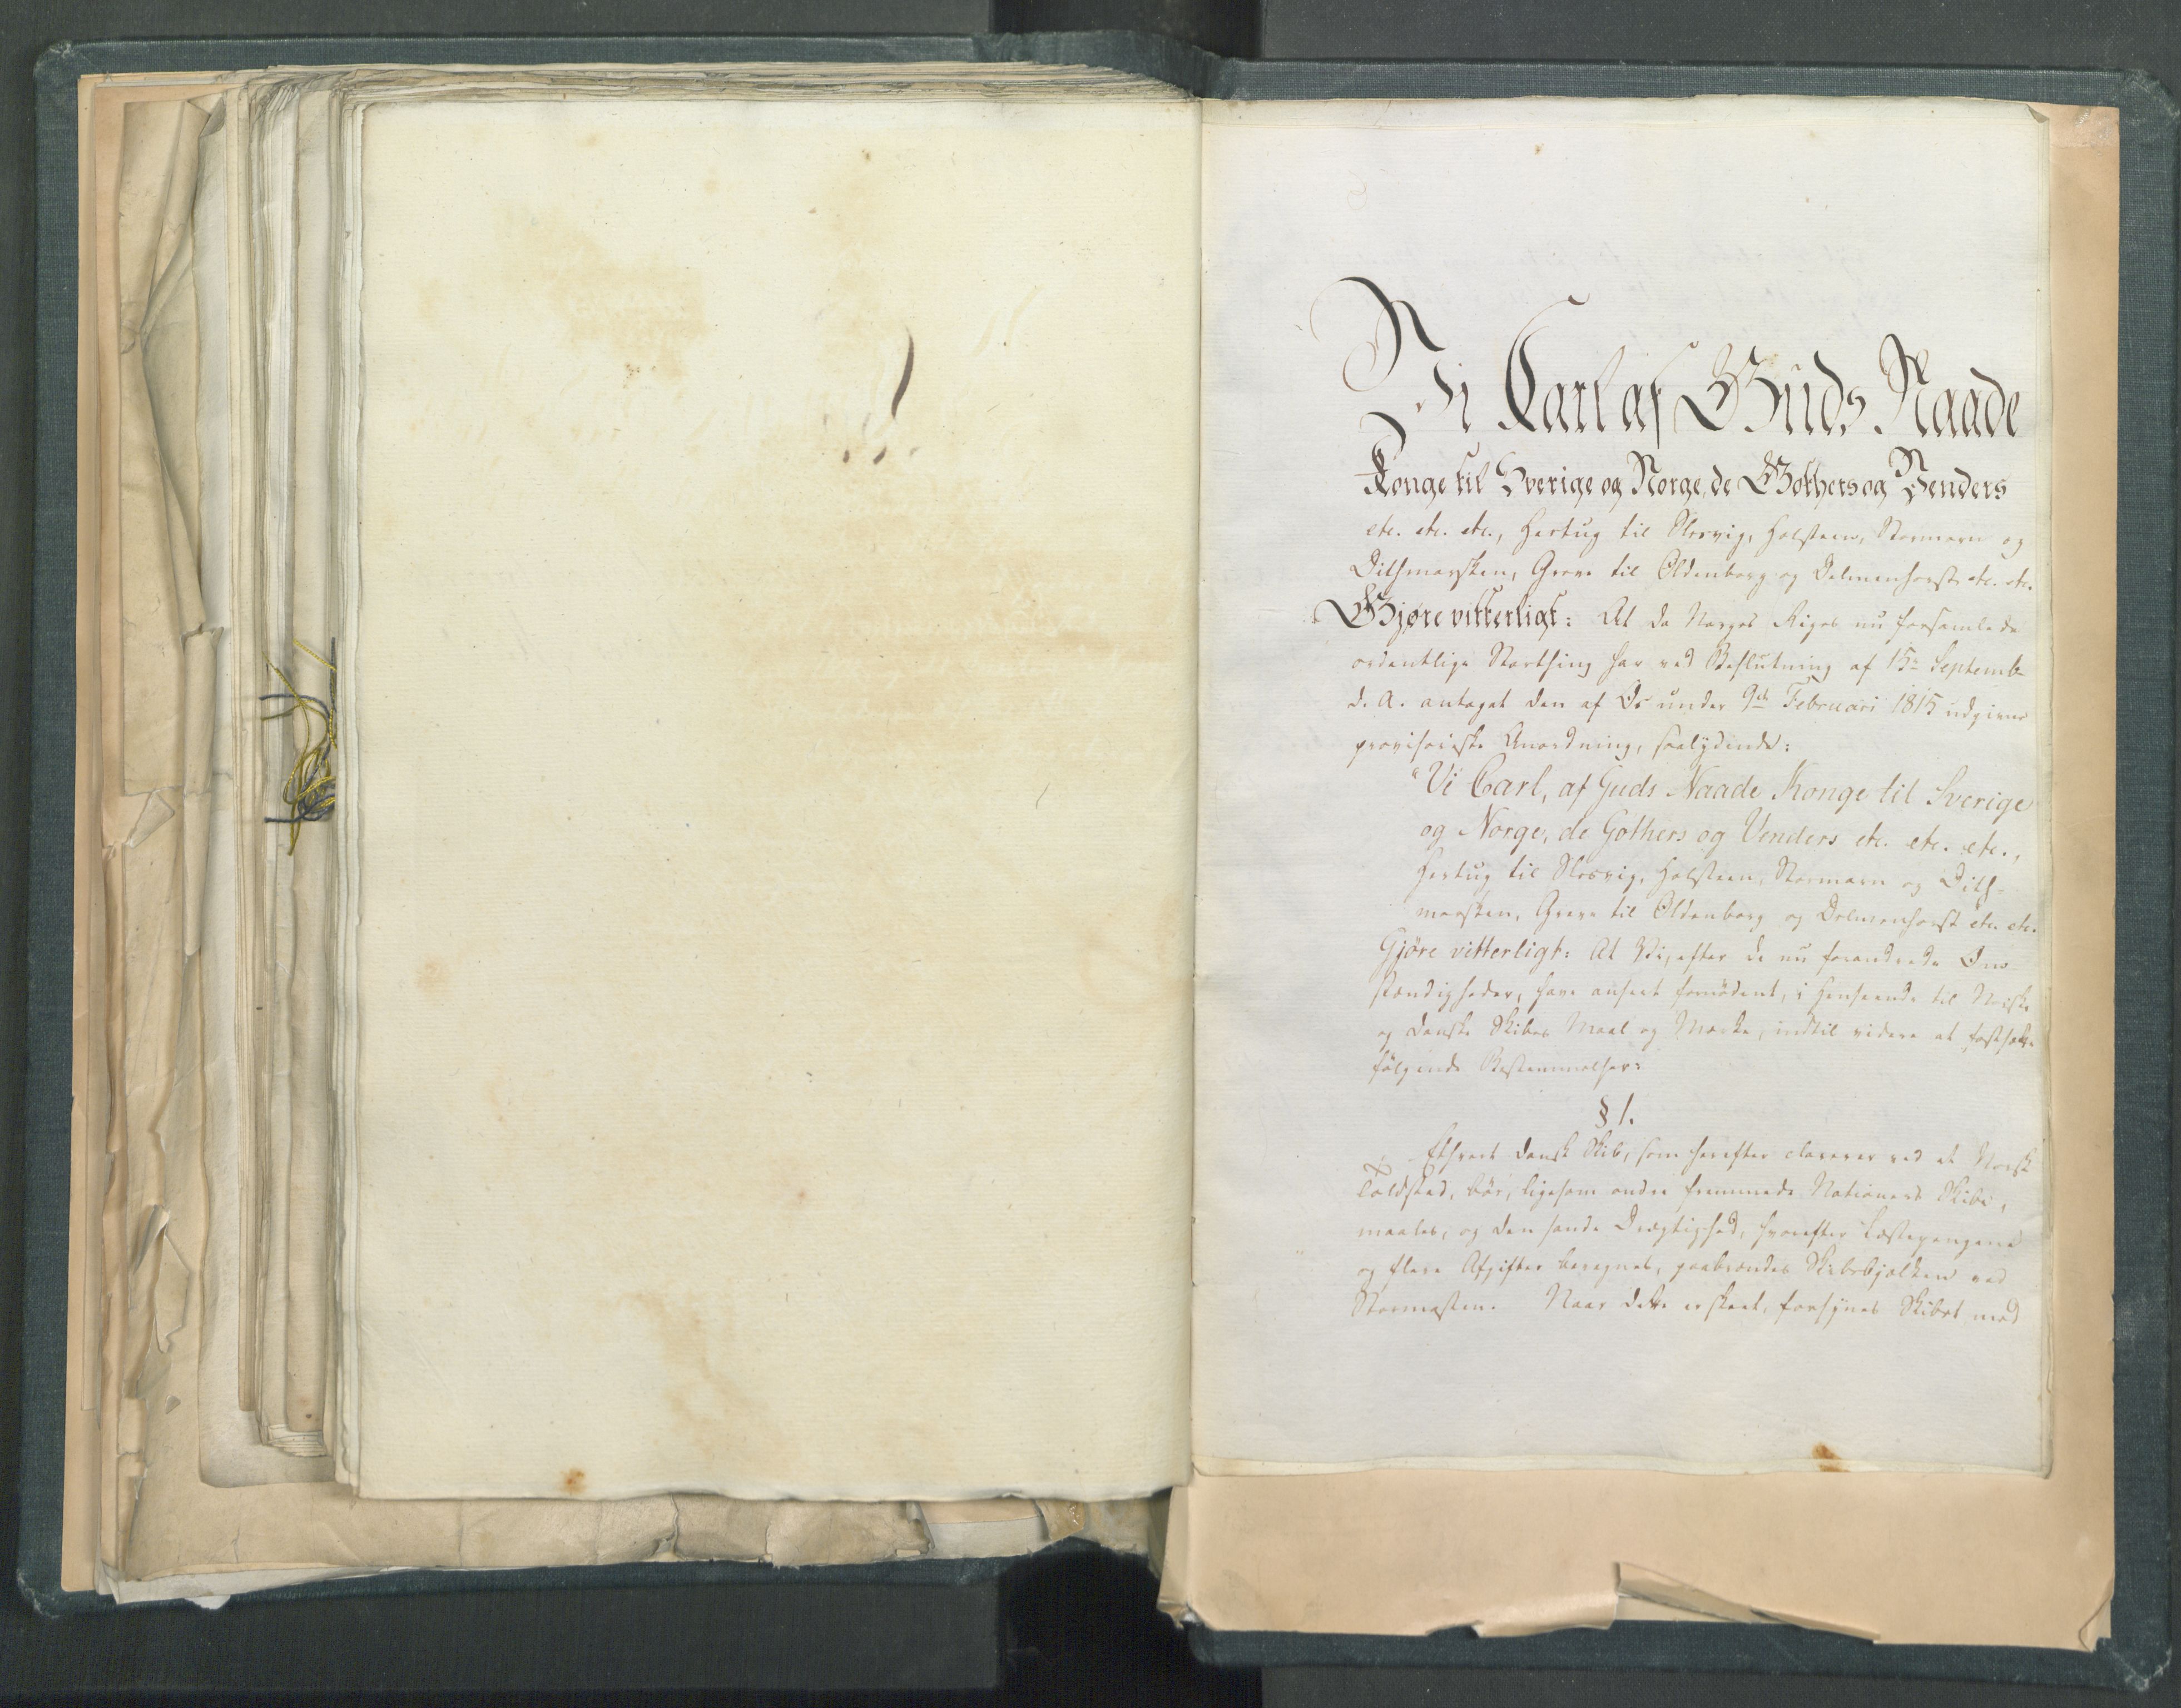 Vi Carl af Guds Naade
Konge til Sverige og Norge, de Gothers og Venders
etc. etc. etc., Hertug til Slesvig, Holsteen, Stormarn og
Dithmarsken, Greve til Oldenborg og Delmenhorst etc. etc.
Gjøre vitterligt: At da Norges Riges nu forsamlede
ordentlige Storthing har ved Beslutning af 15de Septembr
d. A. antaget den af Os under 9de Februari 1815 udgivne
provisoriske Anordning, saalydende:
"Vi Carl, af Guds Naade Konge til Sverige
og Norge, de Gothers og Venders etc. etc. etc.,
Hertug til Slesvig, Holsteen, Stormarn og Dith-
marsken, Greve til Oldenborg og Delmenhorst etc. etc.
Gjøre vitterligt: At Vi, efter de nu forandrede Om-
stændigheder, have anseet fornødent, i Henseende til Norske
og danske Skibes Maal og Mærke, indtil videre at fastsætte
følgende Bestemmelser:
§ 1.
Ethvert dansk Skib, som herefter clarerer ved et Norsk
Toldsted, bør, ligesom andre fremmede Nationers Skibe,
maales, og den sande Drægtighed, hvorefter Læstepengene
og flere Afgifter beregnes, paabrændes Skibsbjælken ved
Stormasten. Naar dette er skeet, forsynes Skibet med